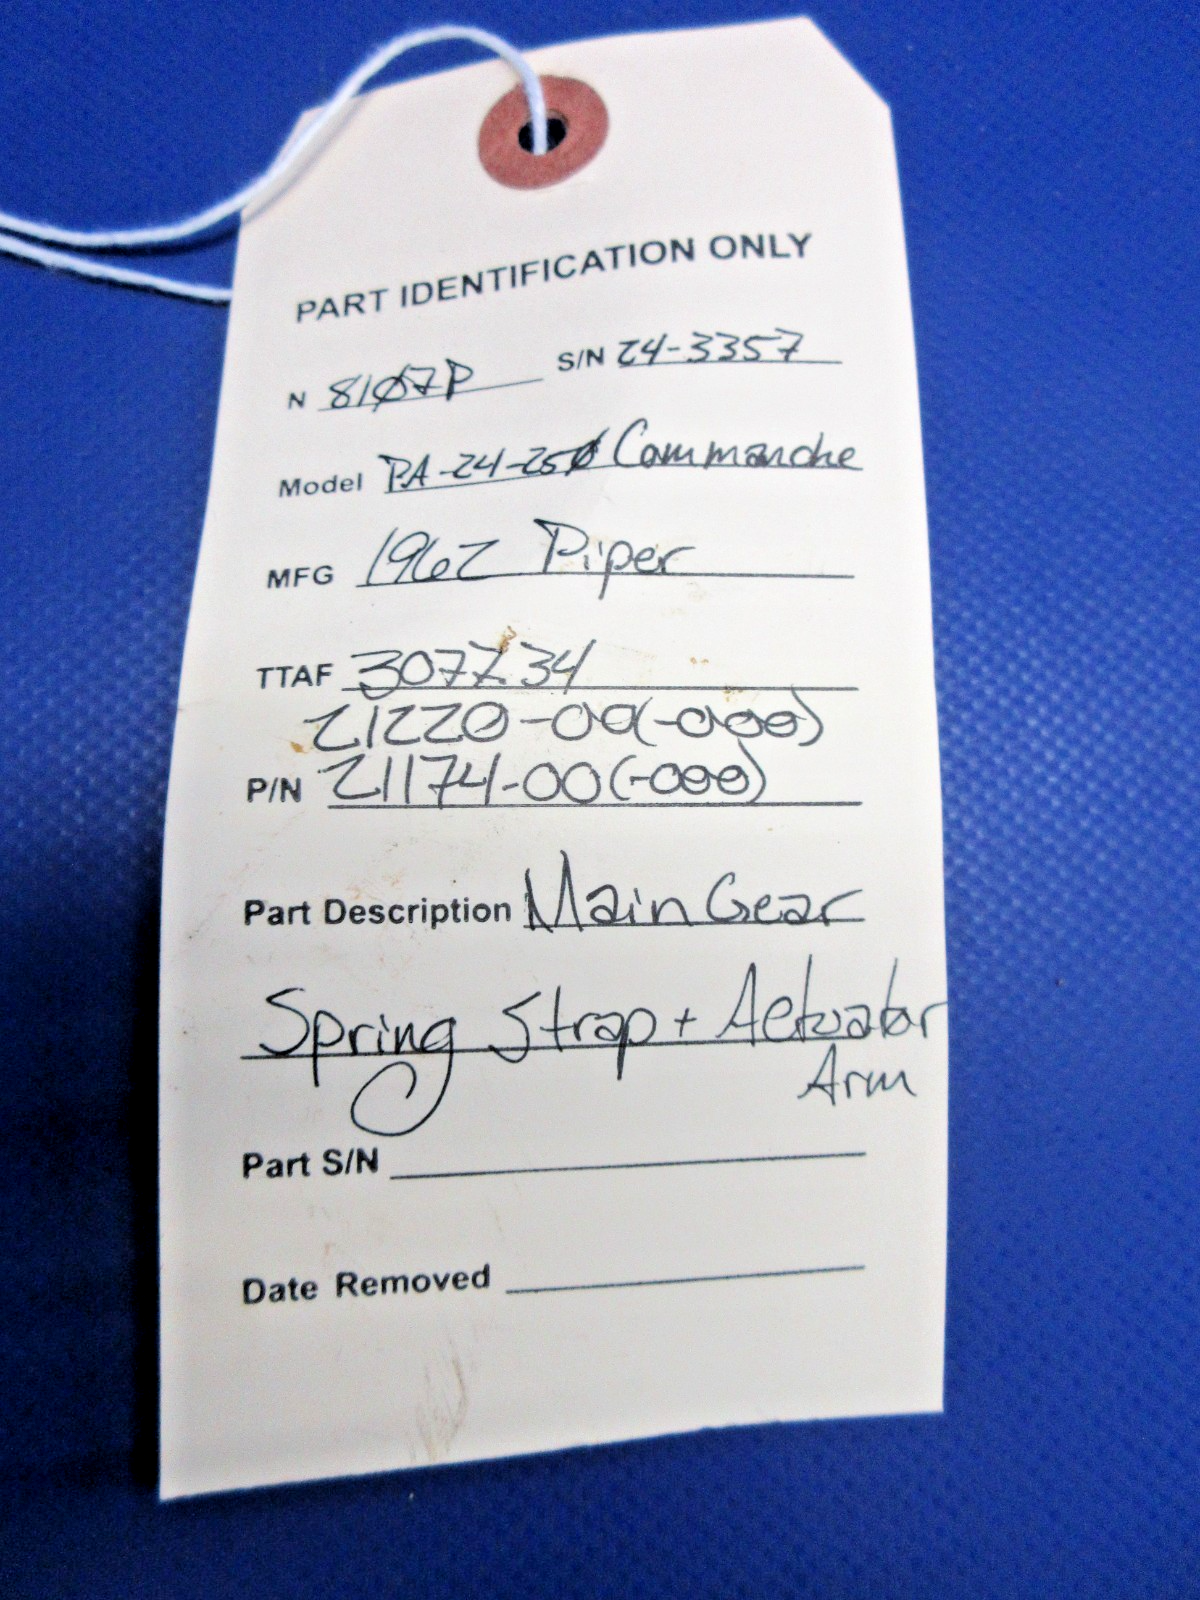 PART IDENTIFICATION ONLY
N 8107P S/N 24-3357
Model PA-24-250 Commanche
MFG 1962 Piper
TTAF 3072.34
21220-00(-000)
P/N 21174-00(-000)
Part Description Main Gear
Spring Strap + Actuator
Arm
Part S/N
Date Removed